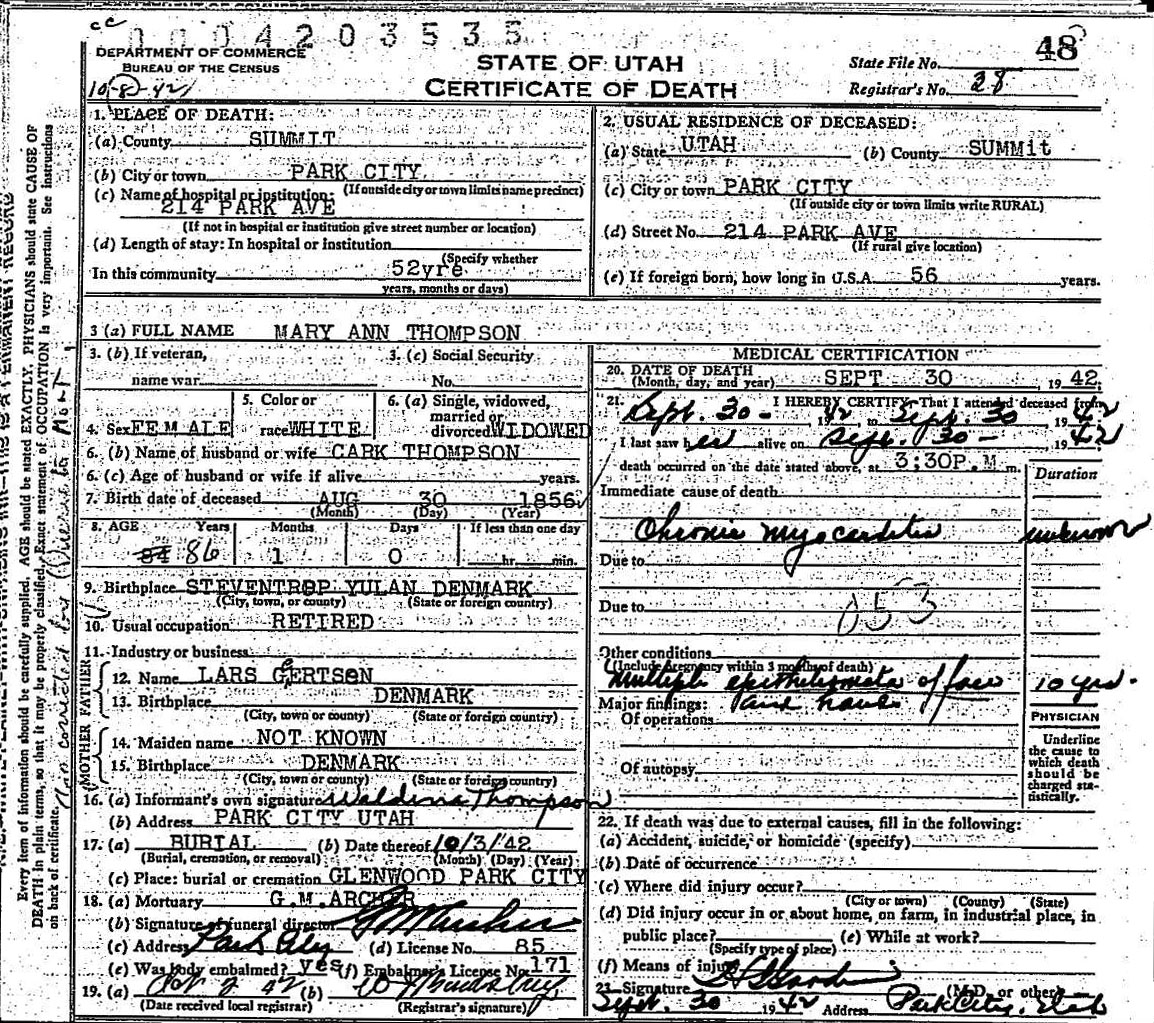 cc 0004203535
DEPARTMENT OF COMMERCE
BUREAU OF THE CENSUS
10-8-42
STATE OF UTAH
CERTIFICATE OF DEATH
State File No. 48
Registrar's No. 28
1. PLACE OF DEATH:
(a) County SUMMIT
(b) City or town PARK CITY
(If outside city or town limits name precinct)
(c) Name of hospital or institution:
214 PARK AVE
(If not in hospital or institution give street number or location)
(d) Length of stay: In hospital or institution
(Specify whether
In this community 52yre
years, months or days)
2. USUAL RESIDENCE OF DECEASED:
(a) State UTAH (b) County SUMMit
(c) City or town PARK CITY
(If outside city or town limits write RURAL)
(d) Street No. 214 PARK AVE
(If rural give location)
(e) If foreign born, how long in U.S.A. 56 years.
3 (a) FULL NAME MARY ANN THOMPSON
3. (b) If veteran, name war
3. (c) Social Security No.
4. Sex FEMALE
5. Color or race WHITE
6. (a) Single, widowed, married or divorced WIDOWED
6. (b) Name of husband or wife CARK THOMPSON
6. (c) Age of husband or wife if alive years.
7. Birth date of deceased AUG 30 1856
(Month) (Day) (Year)
8. AGE Years Months Days If less than one day
84 86 1 0 hr. min.
9. Birthplace STEVENTROP YULAN DENMARK
(City, town, or county) (State or foreign country)
10. Usual occupation RETIRED
11. Industry or business
FATHER
12. Name LARS GERTSON
13. Birthplace DENMARK
(City, town or county) (State or foreign country)
MOTHER
14. Maiden name NOT KNOWN
15. Birthplace DENMARK
(City, town or county) (State or foreign country)
16. (a) Informant's own signature Waldena Thompson
(b) Address PARK CITY UTAH
17. (a) BURIAL (b) Date thereof 10/3/42
(Burial, cremation, or removal) (Month) (Day) (Year)
(c) Place: burial or cremation GLENWOOD PARK CITY
18. (a) Mortuary G.M.ARCHER
(b) Signature of funeral director G M Archer
(c) Address Park City (d) License No. 85
(e) Was body embalmed? yes (f) Embalmer's License No. 171
19. (a) Oct 2 42 (b)
(Date received local registrar) (Registrar's signature)
MEDICAL CERTIFICATION
20. DATE OF DEATH
(Month, day, and year) SEPT 30 1942
21. I HEREBY CERTIFY, That I attended deceased from
Sept. 30 - 1942, to Sept. 30 1942
I last saw her alive on Sept. 30 - 1942
death occurred on the date stated above, at 3:30P.M m.
Duration
Immediate cause of death
Chronic myocarditis unknown
Due to
Due to
053
Other conditions
(Include pregnancy within 3 months of death)
Multiple epitheliomata of face 10 yrs.
and hands
Major findings:
Of operations
Of autopsy
PHYSICIAN
Underline
the cause to
which death
should be
charged sta-
tistically.
22. If death was due to external causes, fill in the following:
(a) Accident, suicide, or homicide (specify)
(b) Date of occurrence
(c) Where did injury occur?
(City or town) (County) (State)
(d) Did injury occur in or about home, on farm, in industrial place, in
public place? (e) While at work?
(Specify type of place)
(f) Means of injury
23. Signature
(M.D. or other)
Sept. 30 1942 Address Park City, Utah
Every item of information should be carefully supplied. AGE should be stated EXACTLY. PHYSICIANS should state CAUSE OF
DEATH in plain terms, so that it may be properly classified. Exact statement of OCCUPATION is very important. See instructions
on back of certificate.